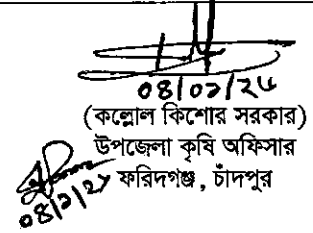 ০৪/০১/২৬
(কল্লোল কিশোর সরকার)
উপজেলা কৃষি অফিসার
ফরিদগঞ্জ, চাঁদপুর